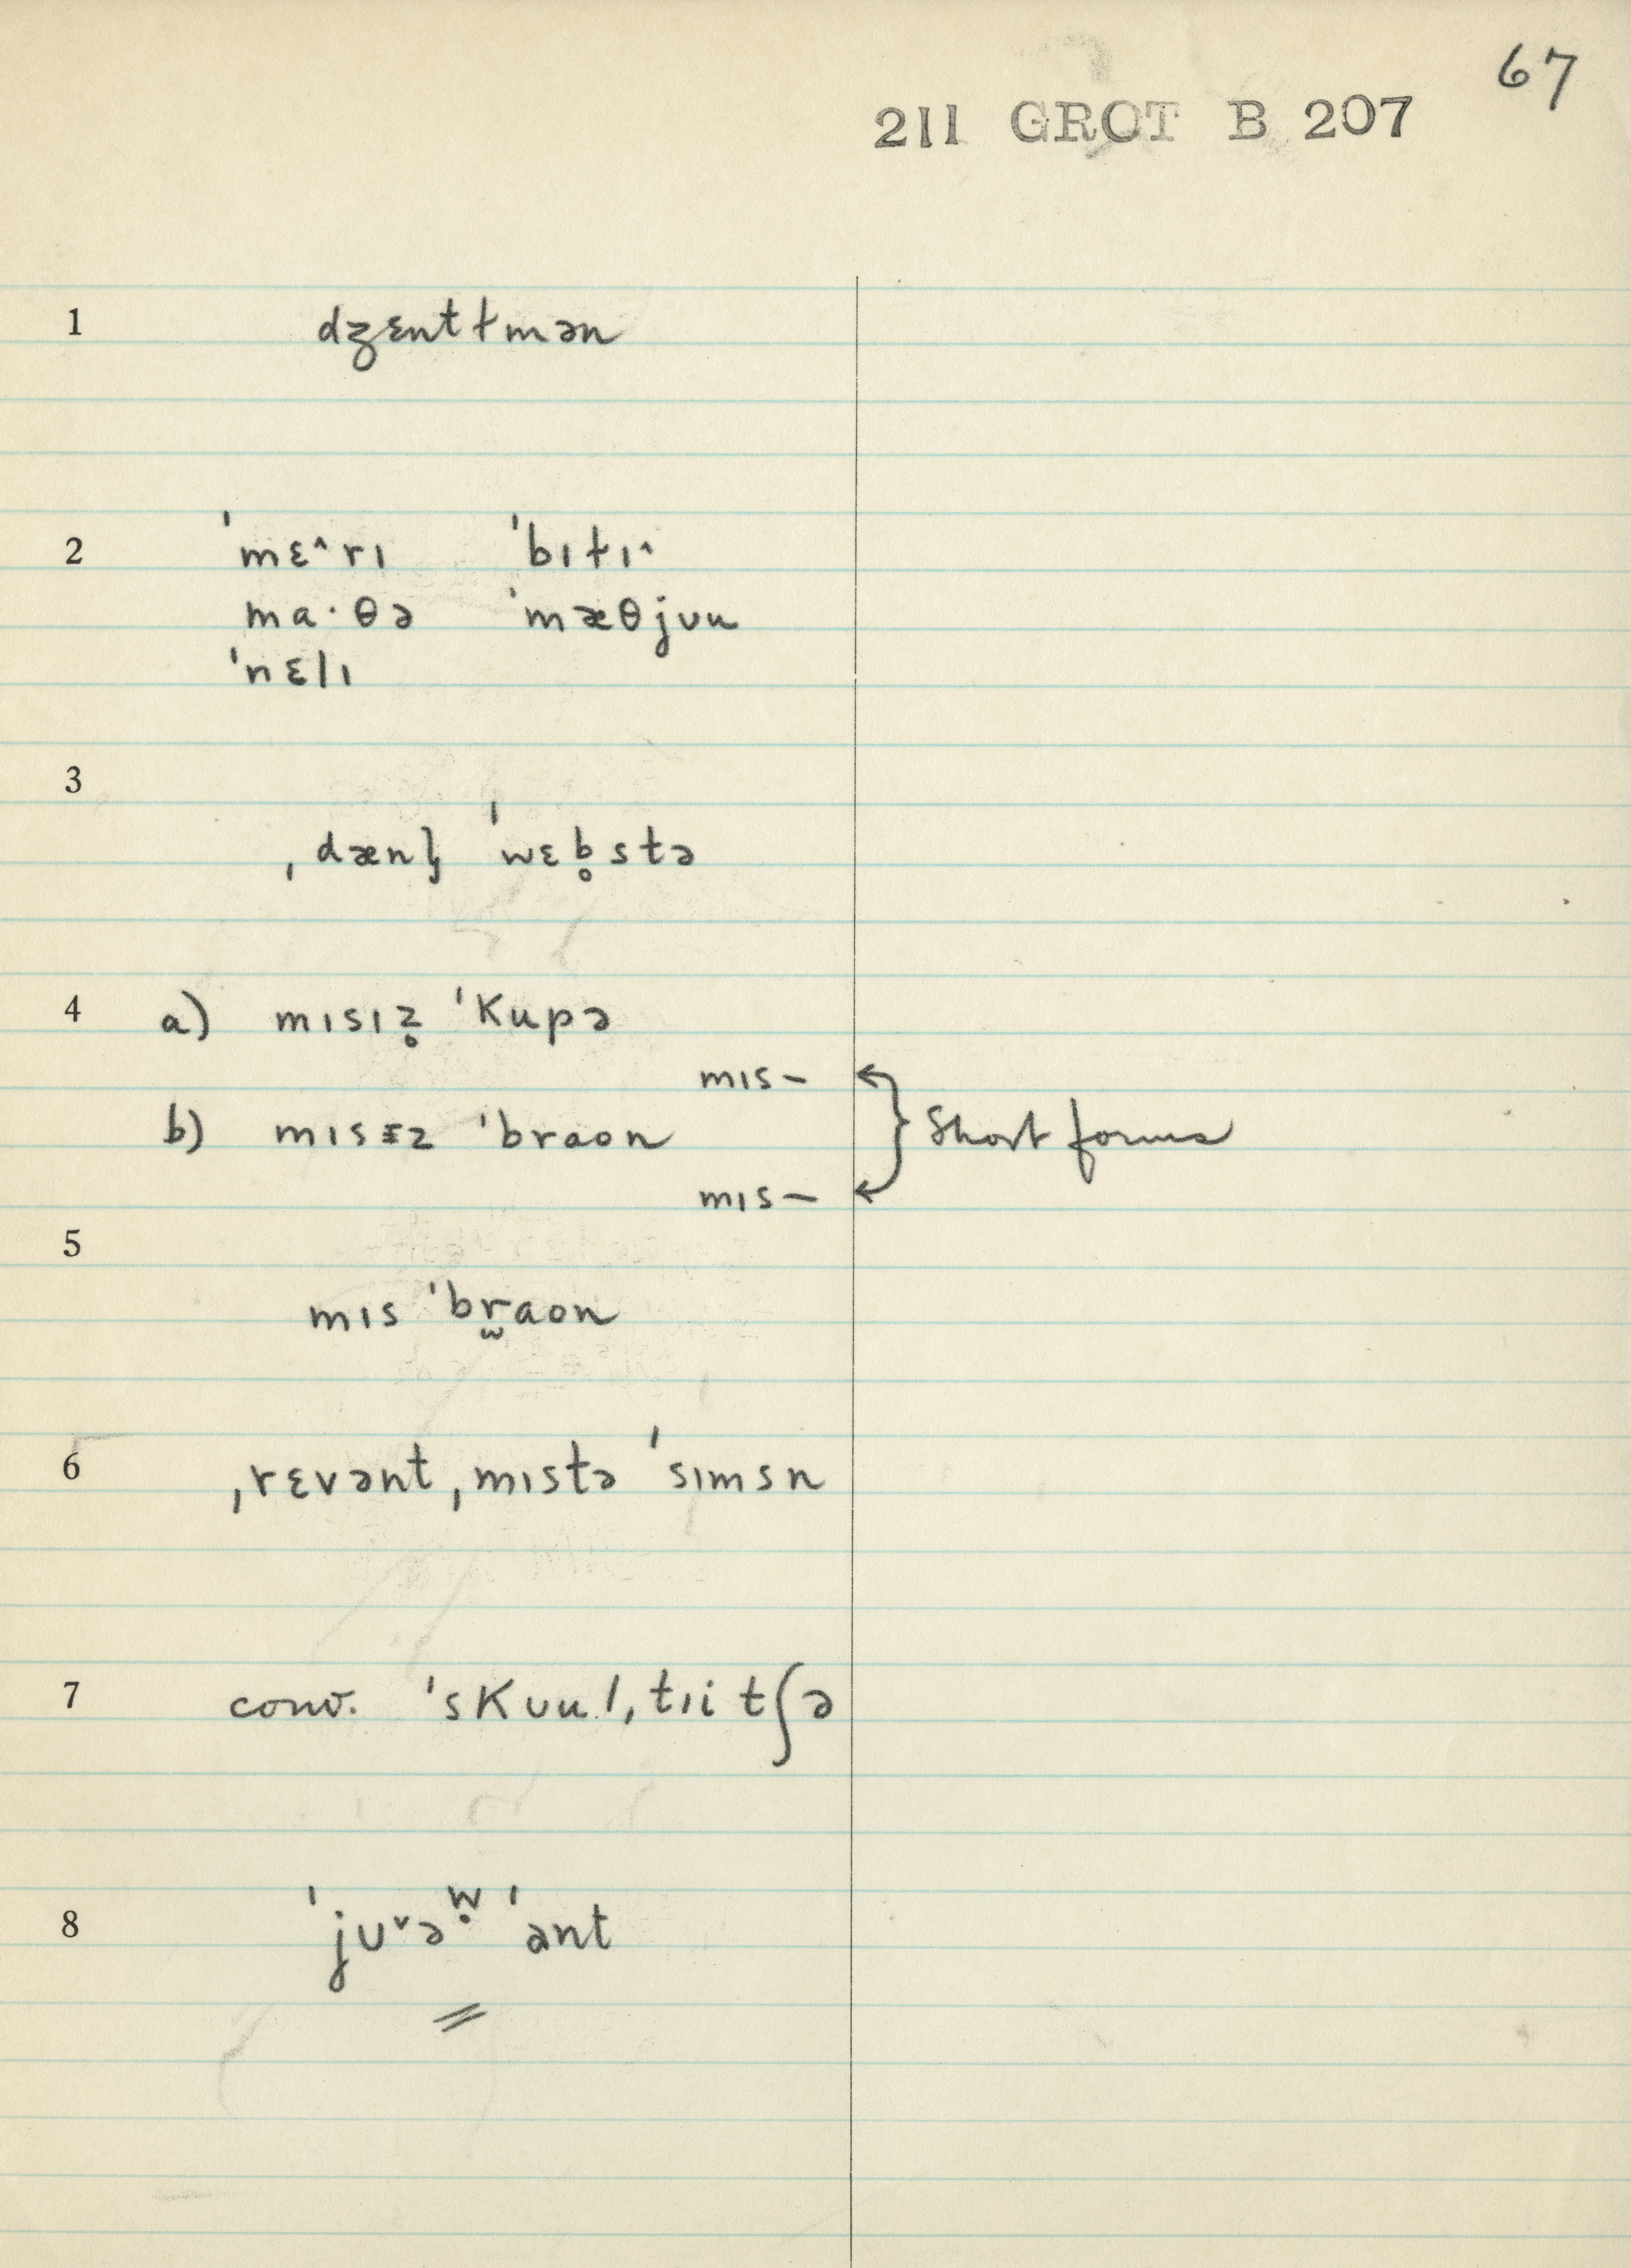 67
211 GROT B 207
1 dʒɛntɫmən
2 ˈmɛ^rɪ ˈbɪɫɪ^
ma·θə ˈmæθjʊu
ˈnɛlɪ
3
ˌdænl̩ ˈwɛb̥stə
4 a) mɪsɪz̥ ˈkupə
mɪs–
b) mɪsɪz ˈbraon } Short forms
mɪs–
5
mɪs ˈbr̫aon
6 ˌrɛvənt ˌmɪstə ˈsɪmsn
7 conv. ˈskʊul ˌtɪitʃə
8 ˈjʊˇəw̥ ˈant